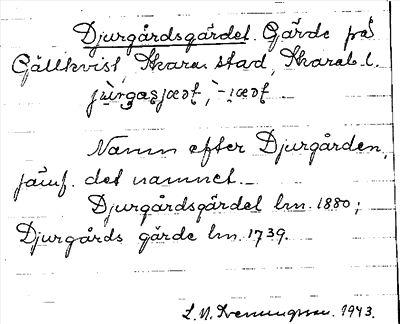 Djurgårdsgärdet. Gärde på
Gällkvist, Skara stad, Skarab. l.
Namn efter Djurgården,
jämf. det namnet.
Djurgårdsgärdet lm. 1880;
Djurgårds gärde lm. 1739.
1943.